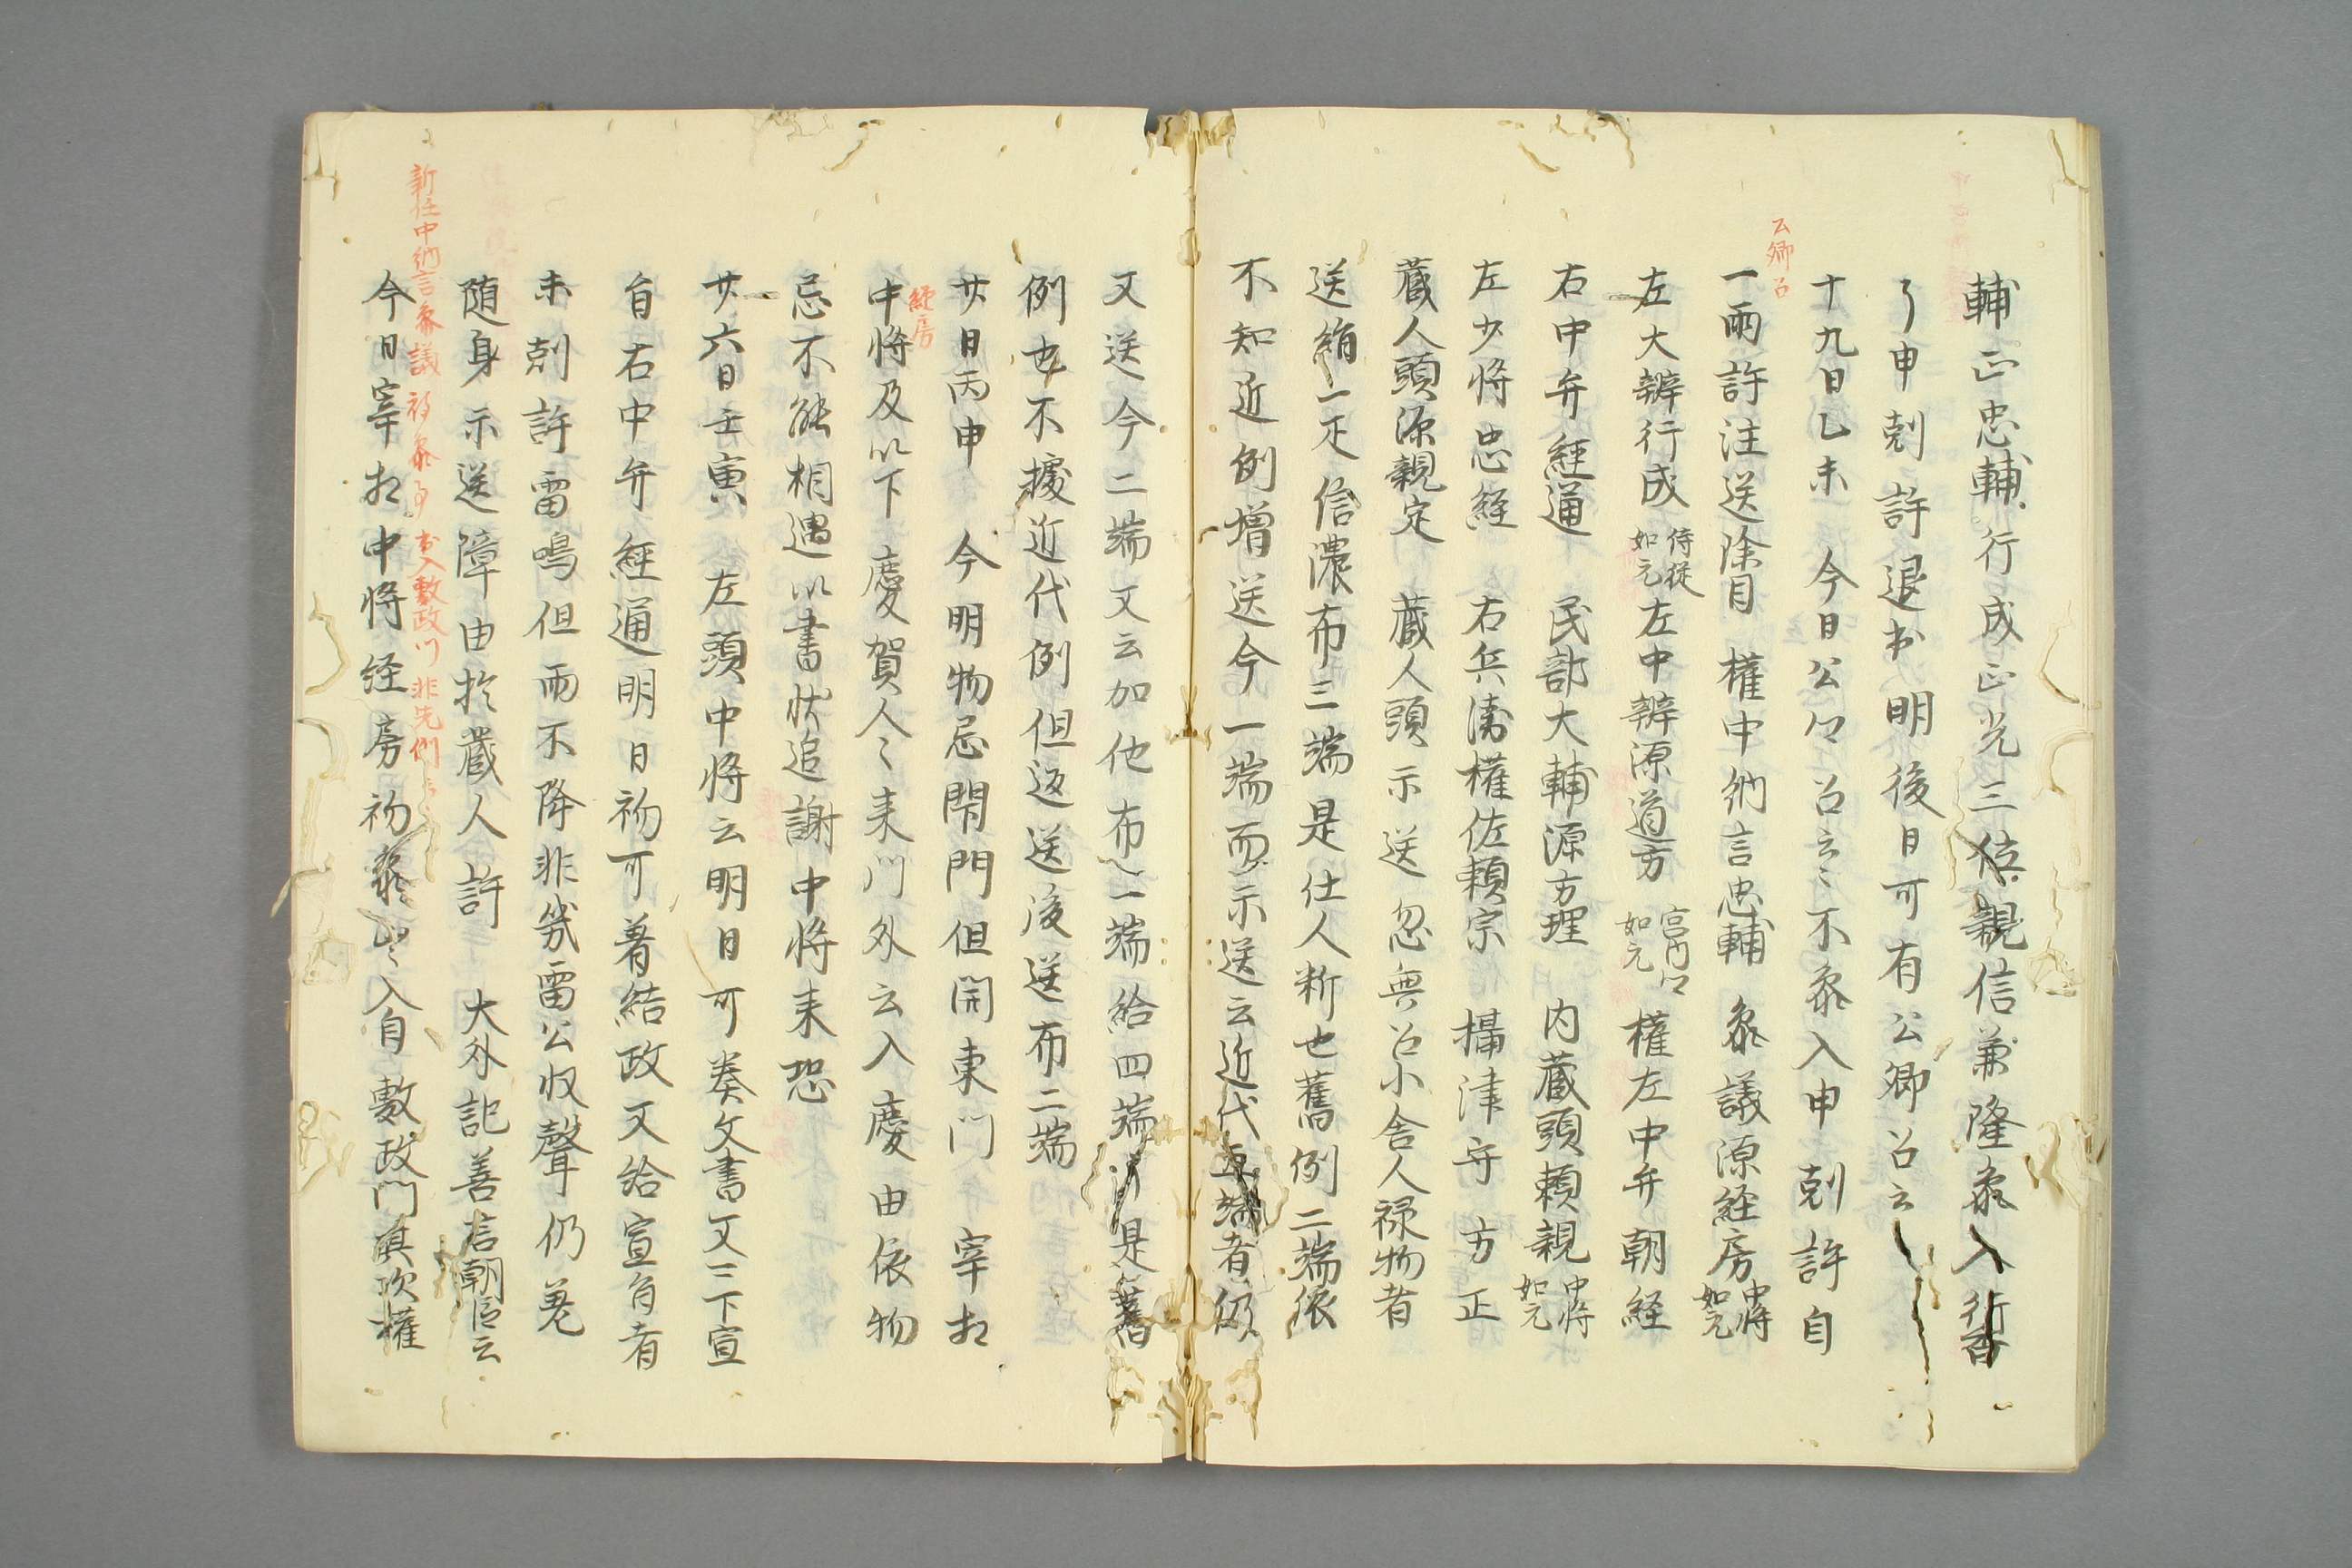 輔正忠輔行成正光三位親信兼隆参入行香
了申剋許退出明後日可有公卿召云
公卿召
十九日乙未 今日公卿召云々不参入申剋許自
一両許注送除目 権中納言忠輔 参議源経房中将如元
左大辨行成侍従如元左中辨源道方宮内卿如元権左中弁朝経
右中弁経通 民部大輔源方理 内蔵頭頼親中将如元
左少将忠経 右兵衛権佐頼宗 攝津守方正
蔵人頭源親定 蔵人頭示送忽無召小舎人禄物者
送絹一疋信濃布三端是仕人断也舊例二端依
不知近例増送今一端而示送云近代五端者仍
又送今二端又云加他布一端給四端 是舊
例也不據近代例但返送後送布二端
廿日丙申 今明物忌閇門但開東門 宰相
経房
中将及以下慶賀人々来門外云入慶由依物
忌不能相遇以書状追謝中将来恐
廿六日壬寅 左頭中将云明日可奏文書又三下宣
旨右中弁経通明日初可著結政又給宣旨者
未剋許雷鳴但雨不降非幾雷公収聲仍差
随身示送障由於蔵人許 大外記善言朝臣云
新任中納言参議初参事 出入敷政門非先例
今日宰相中将経房初参云々入自敷政門眞次權